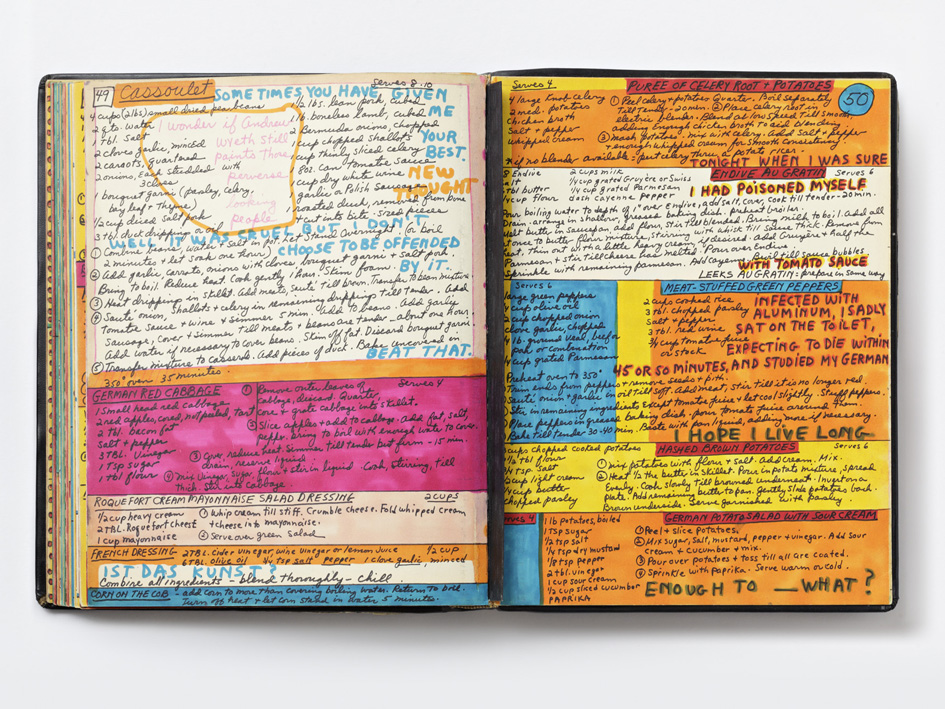 49
Cassoulet
Serves 8-10
SOMETIMES YOU HAVE GIVEN
ME
YOUR
BEST.
NEW
THOUGHT
4 cups (2 lbs) small dried pea beans
2 qts. water
1 tbl. Salt
2 cloves garlic minced
2 carrots, quartered
2 onions, each studded with
3 cloves
1 bouquet garni (parsley, celery,
bay leaf + thyme)
1/2 cup diced salt pork
3 tbl. duck drippings or oil
I wonder if Andrew
Wyeth still
paints those
perverse
looking
people
1 1/2 lbs. lean pork, cubed
1 lb. boneless lamb, cubed
2 Bermuda onions, chopped
cup chopped shallots
cup thinly sliced celery
8 oz. can tomato sauce
cup dry white wine
garlic or Polish Sausage
roasted duck, removed from bone
+ cut into bite-sized pieces
WELL IT WAS CRUEL BUT I DON'T
CHOOSE TO BE OFFENDED
BY IT.
① Combine beans, water + salt in pot. Let Stand Overnight or boil
2 minutes + let soak one hour
② Add garlic, carrots, onions with cloves, bouquet garni + salt pork.
Bring to boil. Reduce heat. Cook gently 1 hour. Skim foam.
③ Heat drippings in skillet. Add meats, sauté till brown. Transfer to bean mixture.
④ Sauté onion, shallots + celery in remaining drippings till tender. Add
Tomato Sauce + wine + Simmer 5 min. Add to beans. Add garlic
Sausage, cover + Simmer till meats + beans are tender - about one hour.
Add water if necessary to cover beans. Skim off fat. Discard bouquet garni.
⑤ Transfer mixture to casserole. Add pieces of duck. Bake uncovered in
350° oven 35 minutes.
BEAT THAT.
GERMAN RED CABBAGE
Serves 4
1 small head red cabbage
2 red apples, cored, not peeled, tart
2 Tbl. bacon fat
Salt + pepper
3 Tbl. Vinegar
1 tsp sugar
1 tbl flour
① Remove outer leaves of
cabbage, discard. Quarter
core + grate cabbage into skillet.
② Slice apples + add to cabbage. add fat, salt,
pepper. bring to boil with enough water to cover.
③ Cover reduce heat. Simmer till tender but firm - 15 min.
drain, reserve liquid.
④ mix vinegar, sugar, flour + stir in liquid. Cook, stirring, till
thick. Stir into cabbage
ROQUEFORT CREAM MAYONNAISE SALAD DRESSING
2 CUPS
1/2 cup heavy cream
2 TBL. Roquefort cheese
1 cup mayonnaise
① Whip cream till stiff. Crumble cheese. Fold whipped cream
+ cheese into mayonnaise.
② Serve over green Salad
FRENCH DRESSING
2 TBL. Cider Vinegar, wine vinegar or lemon Juice
1/2 CUP
6 TBL. Olive oil 1/4 tsp salt pepper 1 clove garlic, minced
IST DAS KUNST?
Combine all ingredients - blend thoroughly - chill
CORN ON THE COB - add corn to more than covering boiling water. Return to boil.
Turn off heat + let corn stand in water 5 minutes.
50
Serves 4
PUREE OF CELERY ROOT + POTATOES
4 large knob celery
2 med. potatoes
Chicken broth
Salt + pepper
whipped cream
① Peel celery + potatoes. Quarter. Boil separately
till tender - 20 min. ② Place celery root in
electric blender. Blend at low speed till smooth,
adding enough chicken broth to aid blending
③ mash potatoes. Mix with celery. Add salt + pepper
+ enough whipped cream for smooth consistency.
* if no blender available: put celery thru a potato ricer.
TONIGHT WHEN I WAS SURE
ENDIVE AU GRATIN
Serves 6
8 Endive
Salt
tbl butter
1/4 cup flour
2 cups milk
1/2 cup grated Gruyère or Swiss
1/4 cup grated Parmesan
dash cayenne Pepper
I HAD POISONED MYSELF
Pour boiling water to depth of 1" over Endive, add salt, cover, cook till tender - 20 min.
Drain. arrange in shallow, greased baking dish. preheat broiler.
Melt butter in saucepan, add flour, stir till blended. Bring milk to boil. Add all
at once to butter flour mixture, stirring with whisk till sauce thick. Remove from
heat, thin out with a little heavy cream, if desired. add Gruyère + half the
Parmesan + stir till cheese has melted. Pour over Endive
Sprinkle with remaining parmesan. Add cayenne. Broil till sauce bubbles
WITH TOMATO SAUCE
LEEKS AU GRATIN: prepare in same way
Serves 6
MEAT-STUFFED GREEN PEPPERS
large green peppers
cup olive oil
cup chopped onion
clove garlic, chopped
lb ground veal, beef or
pork or combination
cup grated Parmesan
2 cups cooked rice
3 tbl. chopped parsley
Salt + pepper
3 tbl. red wine
3/4 cup tomato juice
or stock
INFECTED WITH
ALUMINUM, I SADLY
SAT ON THE TOILET,
EXPECTING TO DIE WITHIN
45 OR 50 MINUTES, AND STUDIED MY GERMAN
Preheat oven to 350°
Trim ends from peppers + remove seeds + pith.
Sauté onion + garlic in oil till soft. Add meat, stir till it is no longer red.
Stir in remaining ingredients except tomato juice + let cool slightly. Stuff peppers.
Place peppers in greased baking dish. pour tomato juice around them.
Bake till tender 30-40 min. Baste with pan liquid, adding more if necessary.
I HOPE I LIVE LONG
HASHED BROWN POTATOES
Serves 6
cups chopped cooked potatoes
1/2 tbl flour
1/4 tsp Salt
2 cup light cream
1/4 cup butter
chopped parsley
① mix potatoes with flour + salt. add cream. Mix.
② Heat 1/2 the butter in skillet. Pour in potato mixture, spread
Evenly. Cook slowly till browned underneath. Invert on a
plate. Add remaining butter to pan. Gently, slide potatoes back.
Brown underside. Serve garnished with parsley.
Serves 4
GERMAN POTATO SALAD WITH SOUR CREAM
1 lb potatoes, boiled
1 tsp sugar
1/2 tsp salt
1/4 tsp dry mustard
1/8 tsp pepper
2 tbl. vinegar
1 cup sour cream
1/2 cup sliced cucumber
PAPRIKA
① Peel + slice potatoes.
② Mix sugar, salt, mustard, pepper + vinegar. Add sour
cream + cucumber + mix.
③ Pour over potatoes + toss till all are coated.
④ Sprinkle with paprika. Serve warm or cold.
ENOUGH TO __ WHAT?